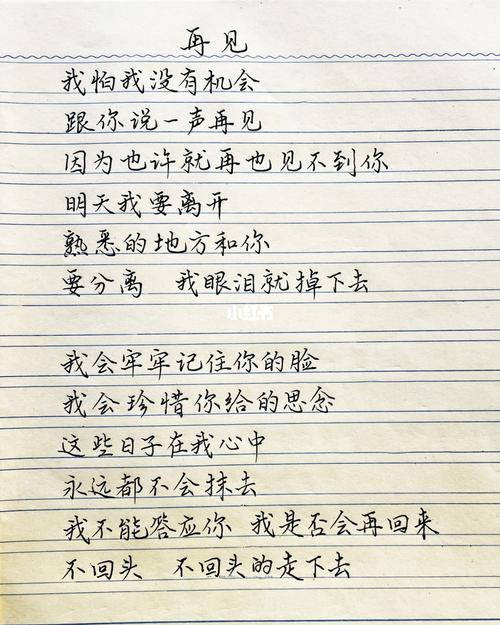 再见
我怕我没有机会
跟你说一声再见
因为也许就再也见不到你
明天我要离开
熟悉的地方和你
要分离 我眼泪就掉下去
小红书
我会牢牢记住你的脸
我会珍惜你给的思念
这些日子在我心中
永远都不会抹去
我不能答应你 我是否会再回来
不回头 不回头的走下去